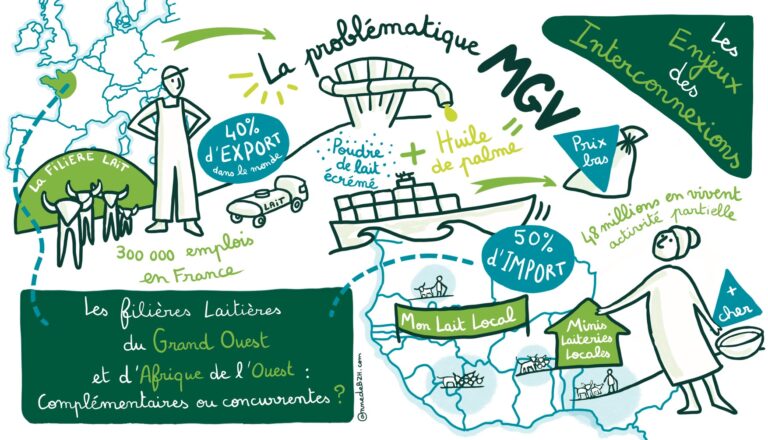 La problématique
MGV
Les
Enjeux
des
Interconnexions
40%
d'EXPORT
dans le monde
LA FILIÈRE LAIT
LAIT
300 000 emplois
en France
Poudre
de lait
écrémé
+
Huile
de palme
Prix
bas
48 millions en vivent
activité partielle
50%
d'IMPORT
Mon Lait Local
Minis
Laiteries
Locales
+
cher
Les filières Laitières
du Grand Ouest
et d'Afrique de l'Ouest :
Complémentaires ou concurrentes ?